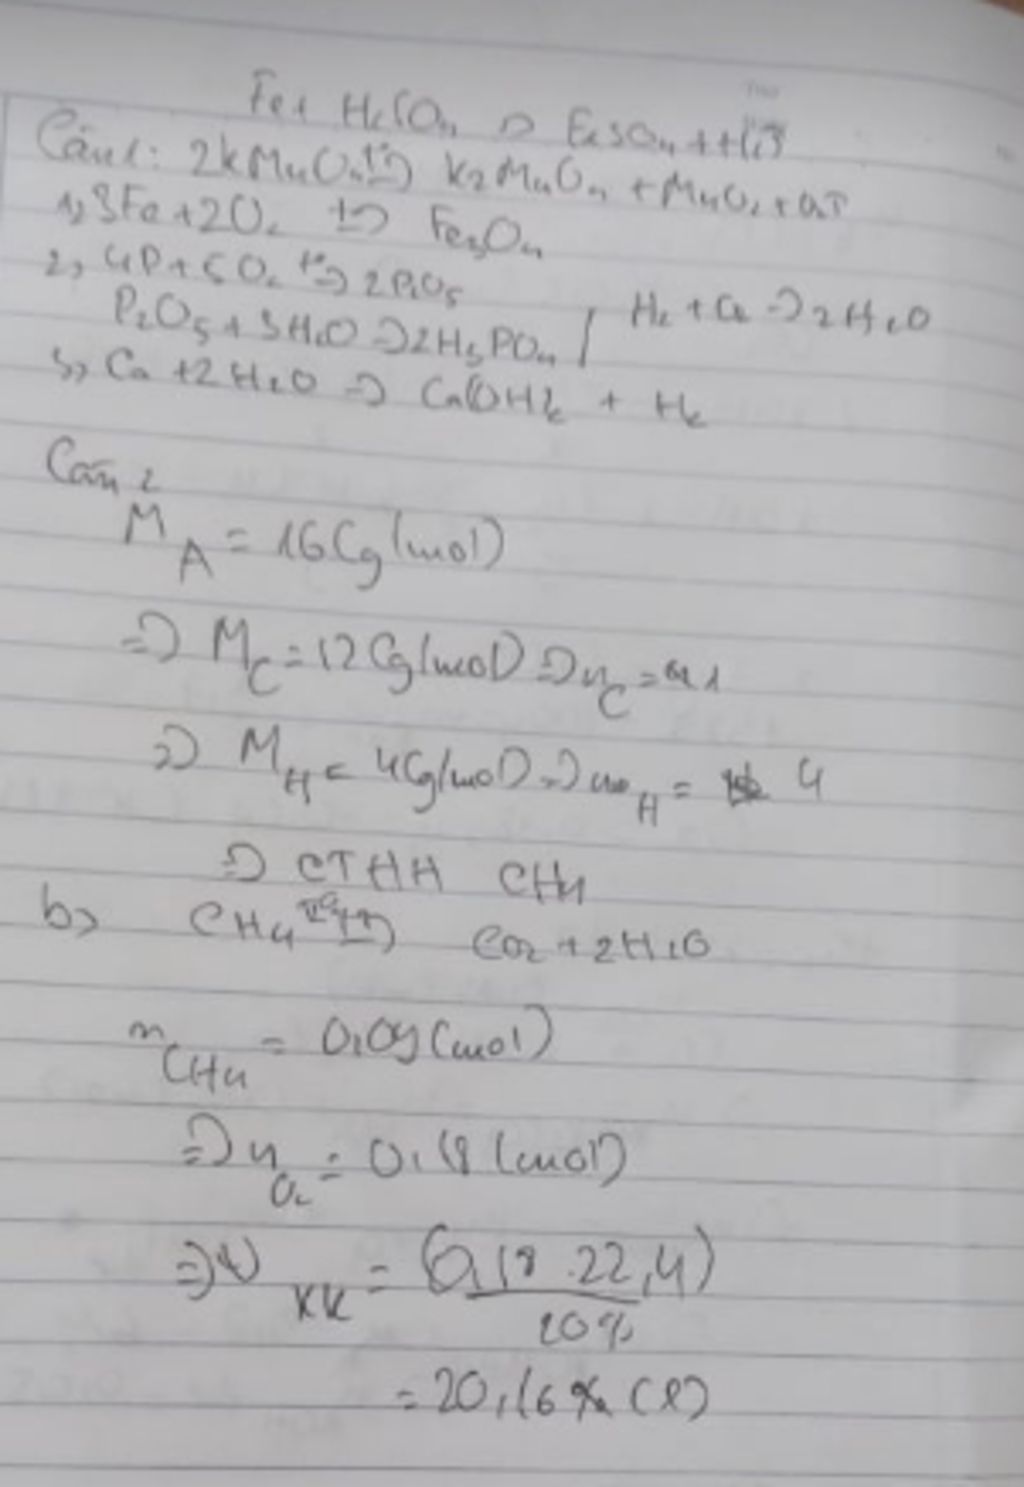 Fe + H2SO4 => FeSO4 + H2
Câu 1: 2KMnO4 t°=> K2MnO4 + MnO2 + O2
1, 3Fe + 2O2 t°=> Fe3O4
2, 4P + 5O2 t°=> 2P2O5
P2O5 + 3H2O => 2H3PO4 / H2 + O2 => 2H2O
3, Ca + 2H2O => Ca(OH)2 + H2
Câu 2
MA = 16 (g/mol)
=> MC = 12 (g/mol) => nC = 1
=> MH = 4 (g/mol) => nH = 4
=> CTHH CH4
b, CH4 => CO2 + 2H2O
nCH4 = 0,09 (mol)
=> nO2 = 0,18 (mol)
=> VKK = (0,18 . 22,4)
20%
= 20,16 (l)